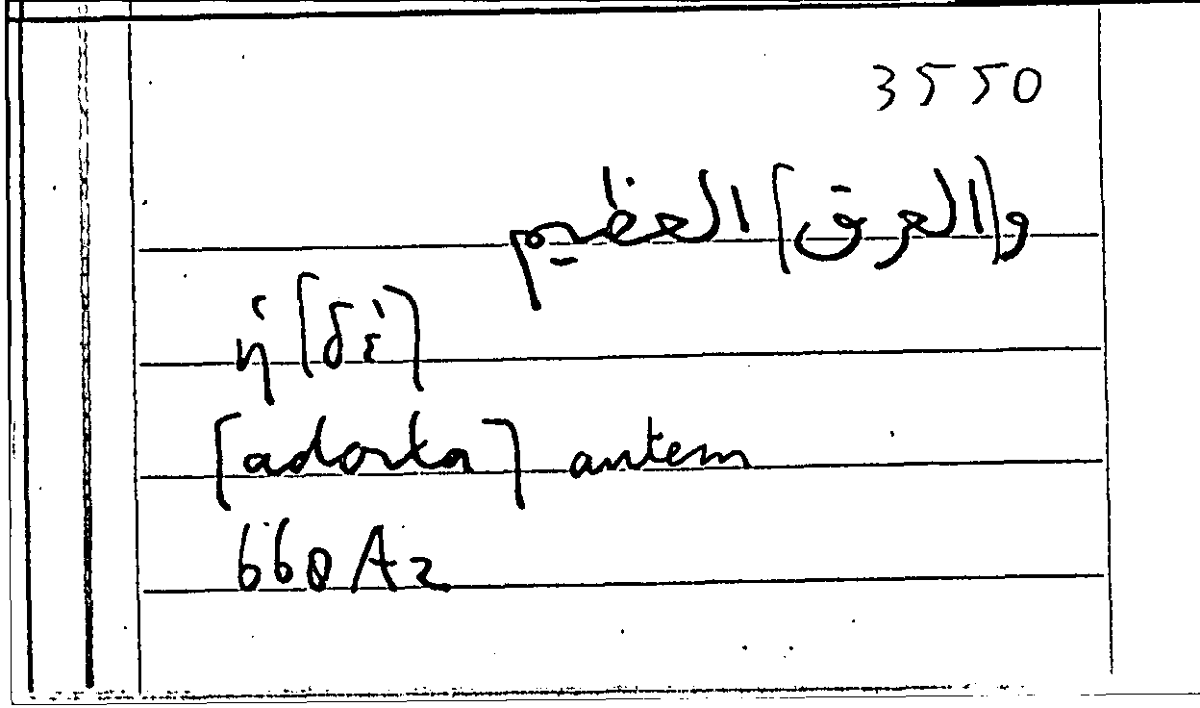 3550
و[العرق] العظيم
ἡ [δὲ]
[adorta] autem
660A2